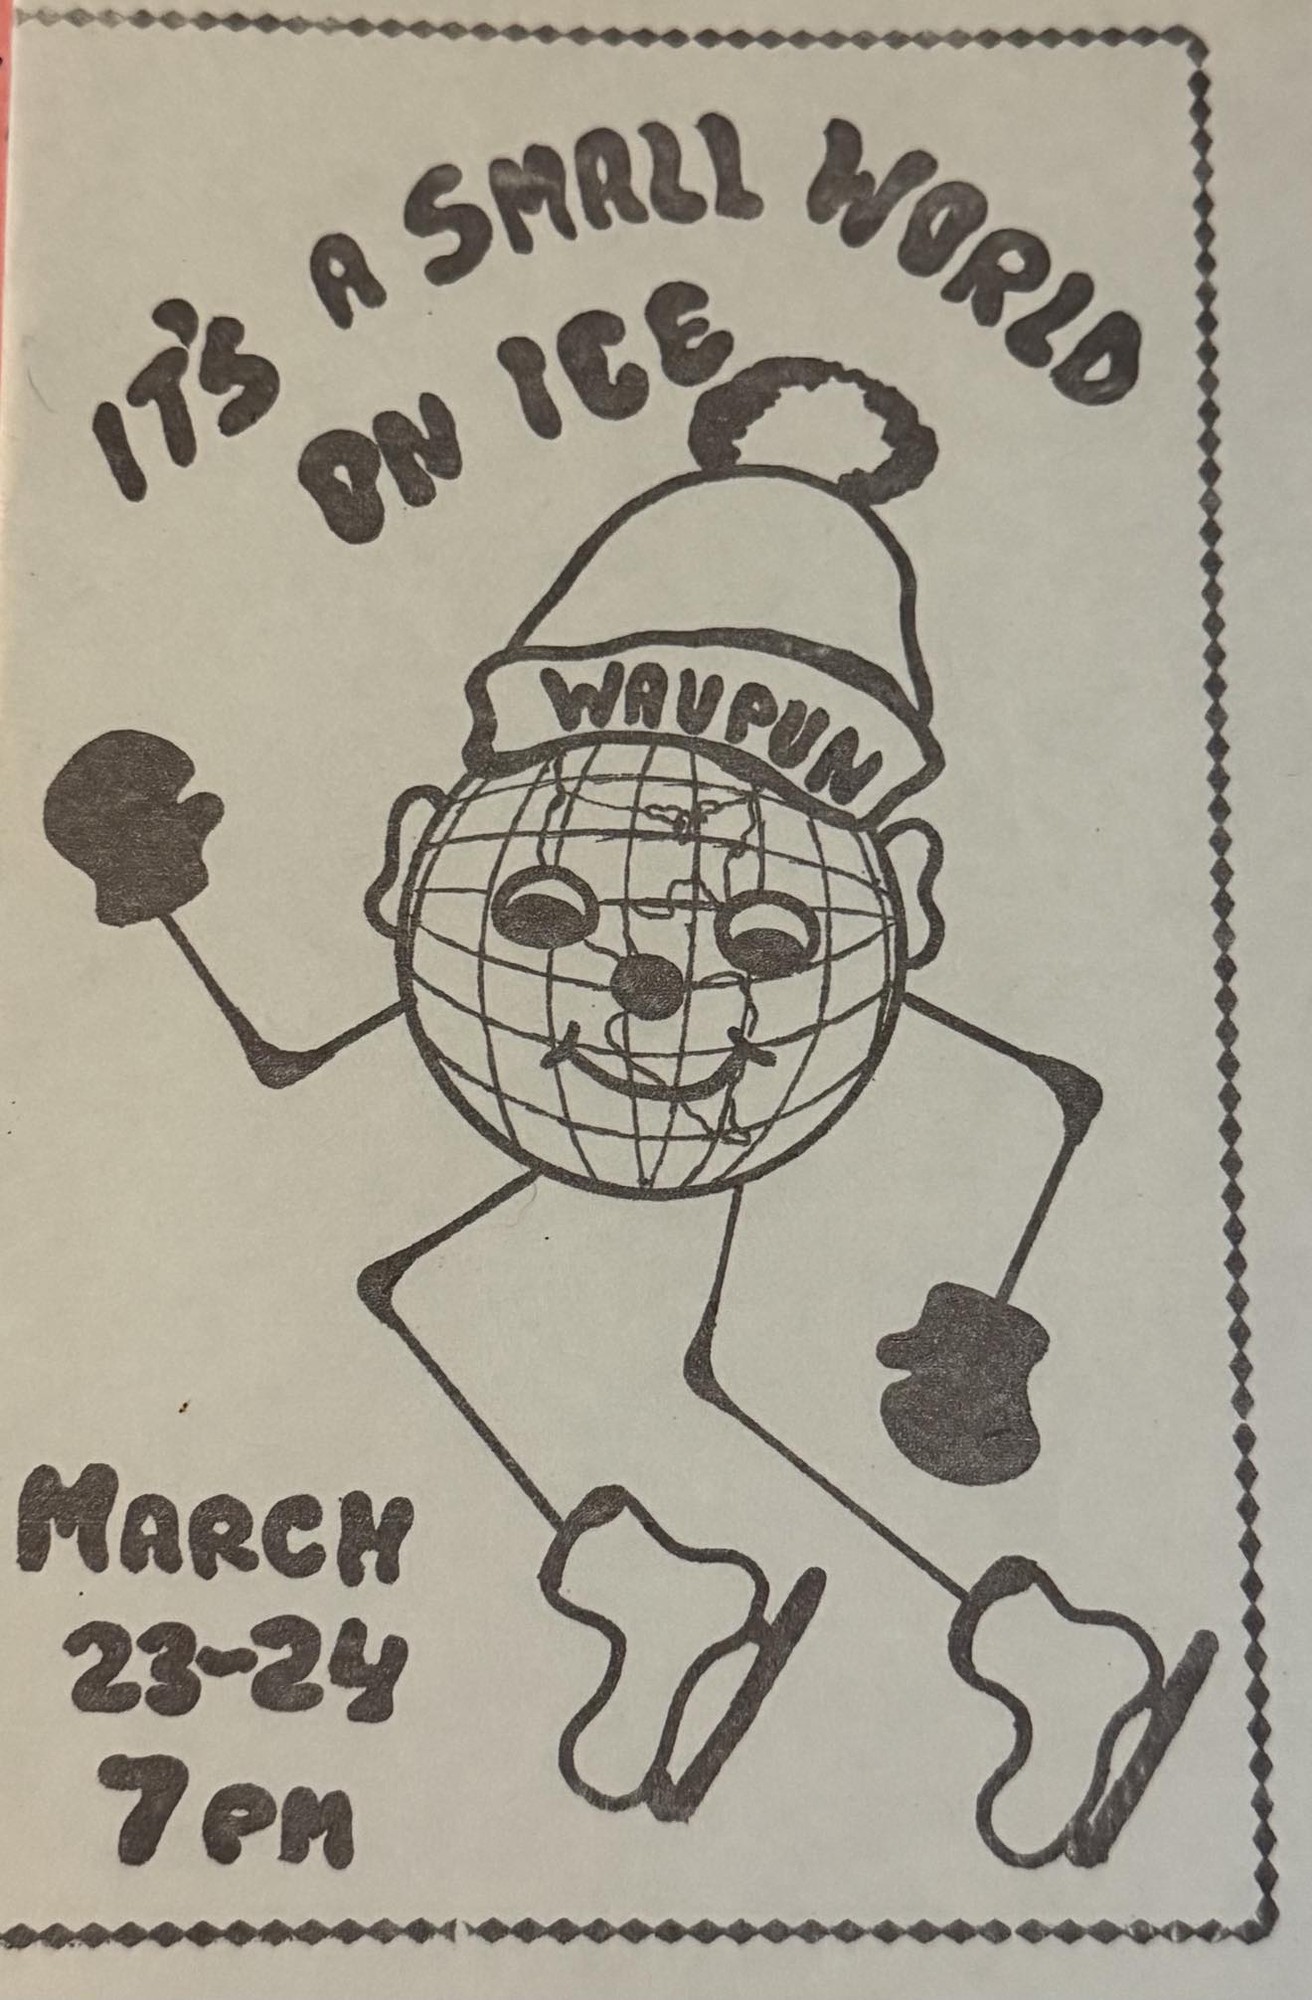 IT'S A SMALL WORLD
ON ICE
WAUPUN
MARCH
23-24
7 PM